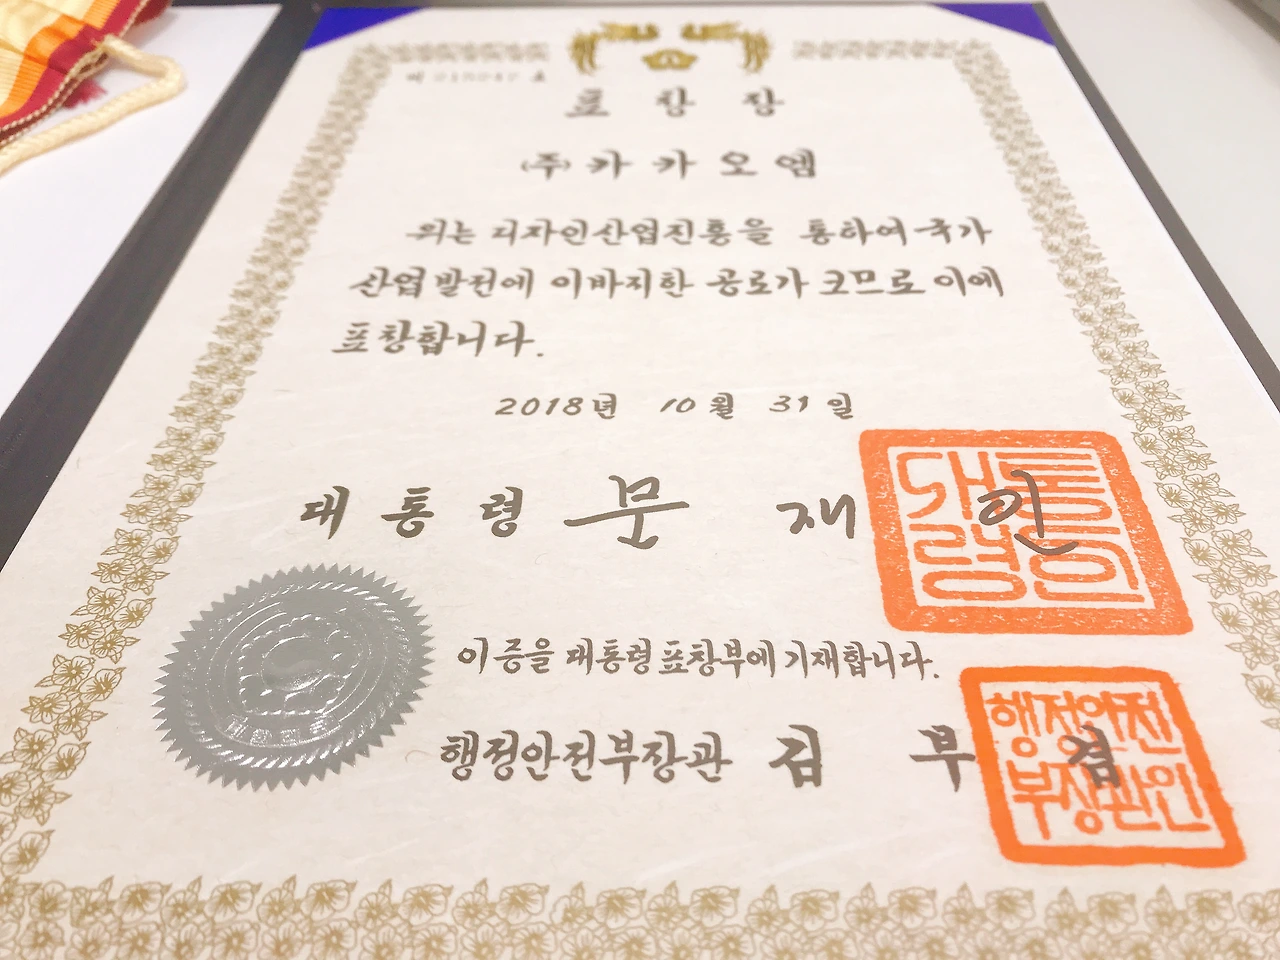 표 창 장
(주)카카오엠
위는 디자인산업진흥을 통하여 국가
산업발전에 이바지한 공로가 크므로 이에
표창합니다.
2018년 10월 31일
대통령 문재인
대통령의인
이 증을 대통령표창부에 기재합니다.
행정안전부장관 김부겸
행정안전부장관인